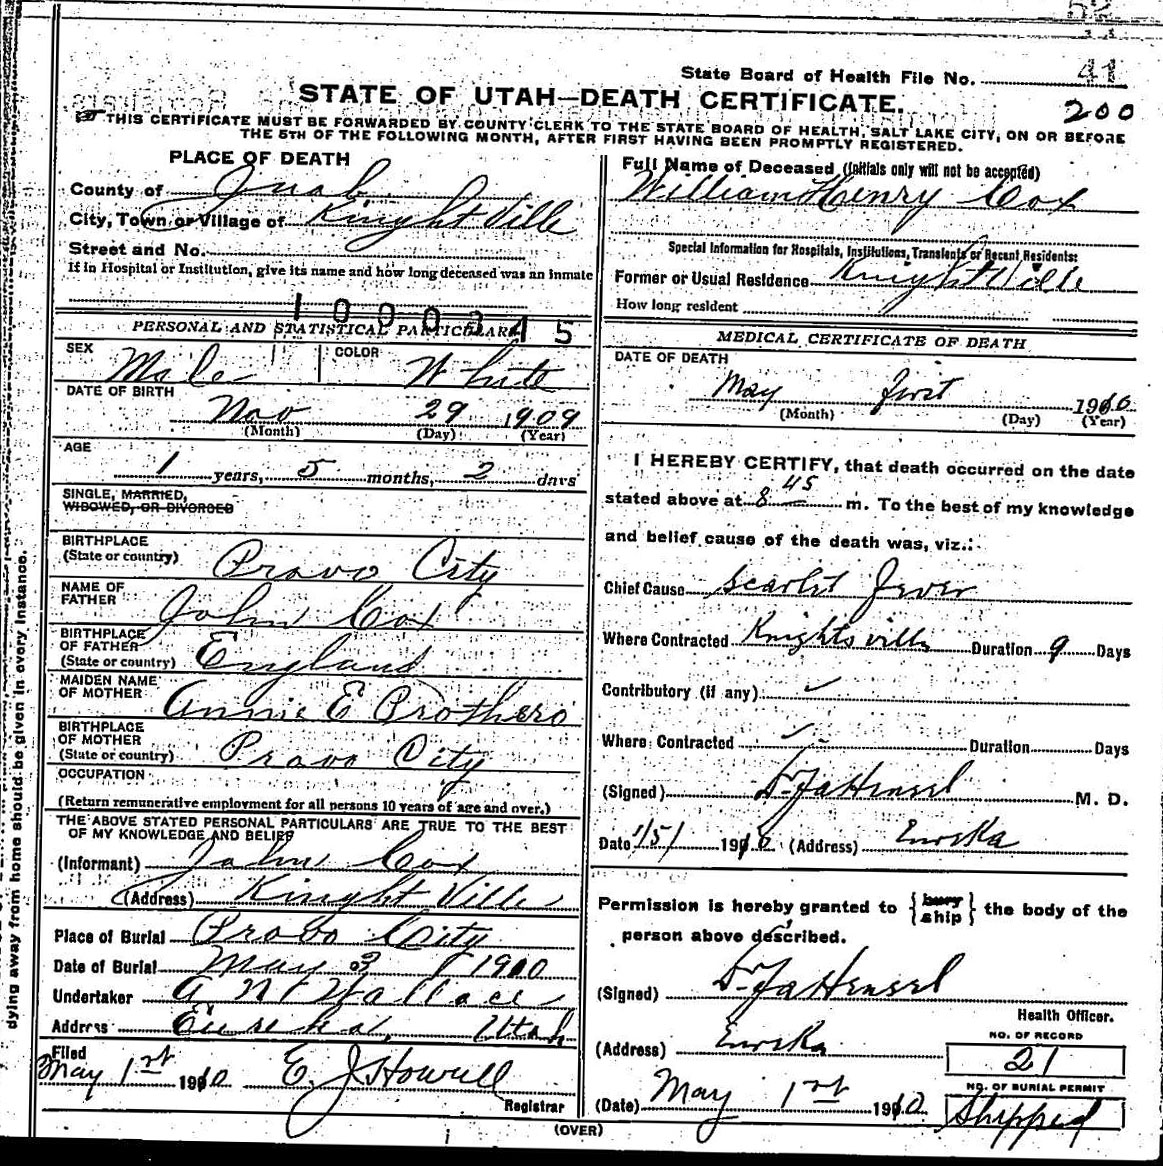 52
State Board of Health File No. 41
STATE OF UTAH—DEATH CERTIFICATE.
200
THIS CERTIFICATE MUST BE FORWARDED BY COUNTY CLERK TO THE STATE BOARD OF HEALTH, SALT LAKE CITY, ON OR BEFORE
THE 5TH OF THE FOLLOWING MONTH, AFTER FIRST HAVING BEEN PROMPTLY REGISTERED.
PLACE OF DEATH
County of Juab
City, Town or Village of Kinght Ville
Street and No.
If in Hospital or Institution, give its name and how long deceased was an inmate
1000345
PERSONAL AND STATISTICAL PARTICULARS
SEX Male COLOR White
DATE OF BIRTH
Nov 29 1909
(Month) (Day) (Year)
AGE
1 years, 5 months, 2 days
SINGLE, MARRIED,
WIDOWED, OR DIVORCED
BIRTHPLACE
(State or country) Provo City
NAME OF
FATHER John Cox
BIRTHPLACE
OF FATHER
(State or country) England
MAIDEN NAME
OF MOTHER Annie E Prothero
BIRTHPLACE
OF MOTHER
(State or country) Provo City
OCCUPATION
(Return remunerative employment for all persons 10 years of age and over.)
THE ABOVE STATED PERSONAL PARTICULARS ARE TRUE TO THE BEST
OF MY KNOWLEDGE AND BELIEF
(Informant) John Cox
(Address) Kinght Ville
Place of Burial Provo City
Date of Burial May 3 1910
Undertaker A N Wallace
Address Eureka, Utah
Filed
May 1st 1910 E. J. Howell
Registrar
dying away from home should be given in every instance.
Full Name of Deceased (Initials only will not be accepted)
William Henry Cox
Special Information for Hospitals, Institutions, Transients or Recent Residents:
Former or Usual Residence Knight Ville
How long resident
MEDICAL CERTIFICATE OF DEATH
DATE OF DEATH
May first 1910
(Month) (Day) (Year)
I HEREBY CERTIFY, that death occurred on the date
stated above at 8 45 m. To the best of my knowledge
and belief cause of the death was, viz.:
Chief Cause Scarlet Fever
Where Contracted Knightsville Duration 9 Days
Contributory (if any)
Where Contracted Duration Days
(Signed) Dr Fa Hensel M. D.
Date 1/5/ 1910 (Address) Eureka
Permission is hereby granted to {bury ship} the body of the
person above described.
(Signed) Dr Fa Hensel
Health Officer.
(Address) Eureka
NO. OF RECORD
21
(Date) May 1st 1910
NO. OF BURIAL PERMIT
Shipped
(OVER)